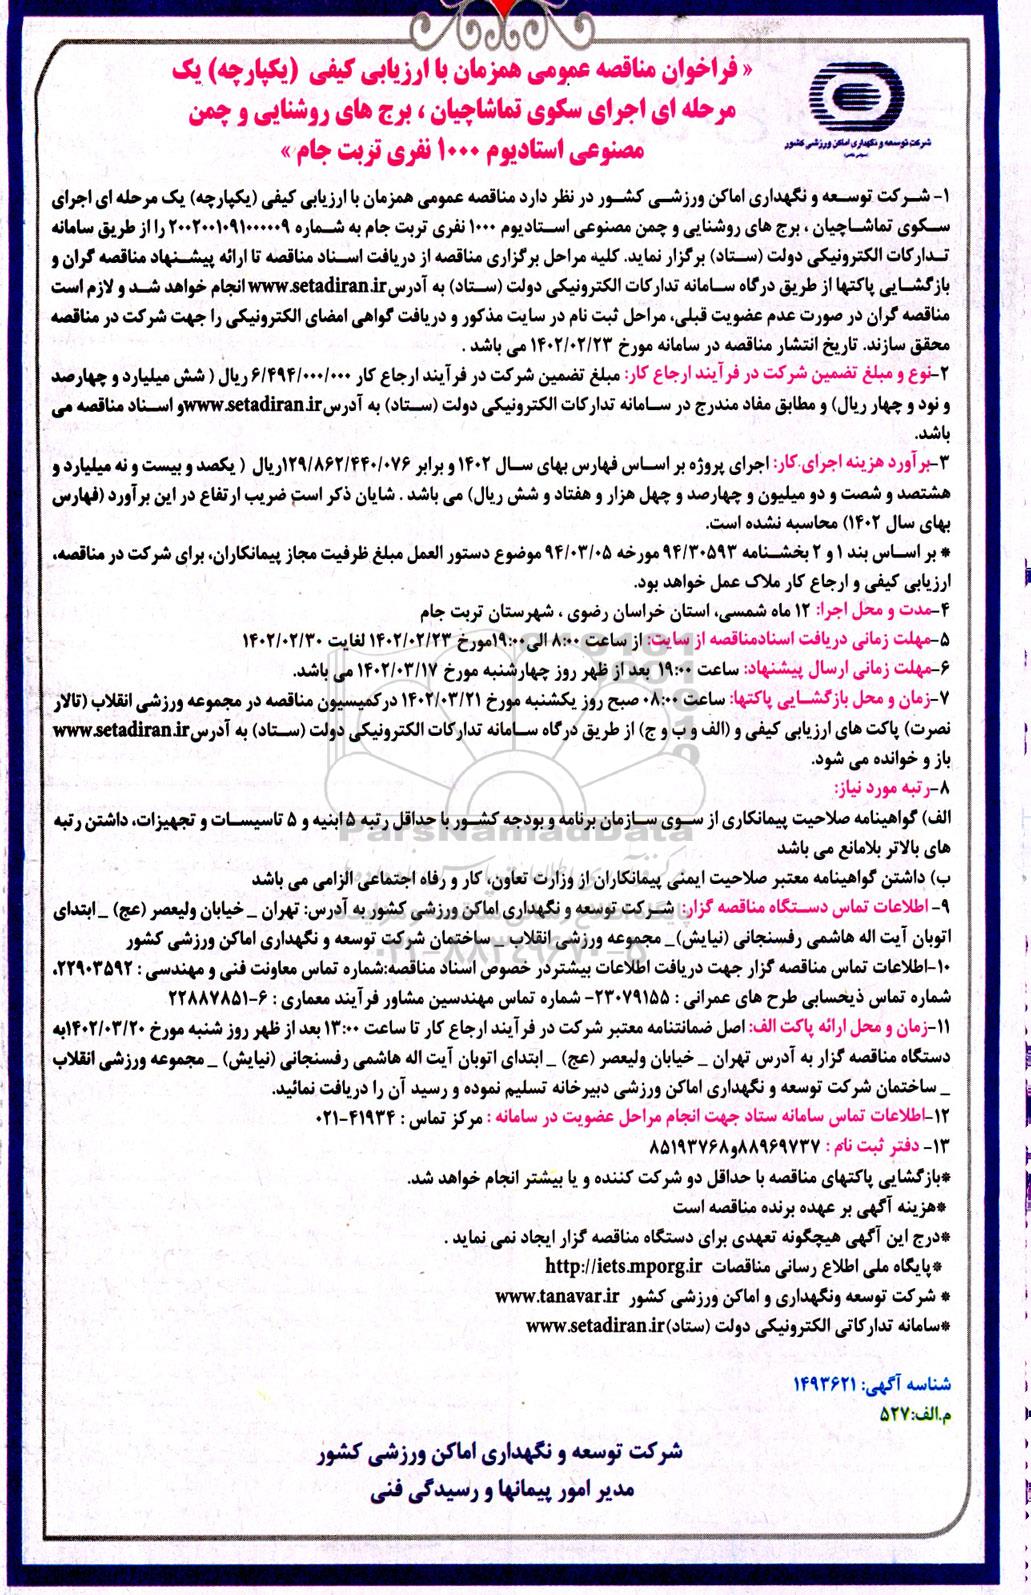 « فراخوان مناقصه عمومی همزمان با ارزیابی کیفی (یکپارچه) یک
مرحله ای اجرای سکوی تماشاچیان ، برج های روشنایی و چمن
مصنوعی استادیوم ۱۰۰۰ نفری تربت جام »
شرکت توسعه و نگهداری اماکن ورزشی کشور
۱- شرکت توسعه و نگهداری اماکن ورزشی کشور در نظر دارد مناقصه عمومی همزمان با ارزیابی کیفی (یکپارچه) یک مرحله ای اجرای
سکوی تماشاچیان ، برج های روشنایی و چمن مصنوعی استادیوم ۱۰۰۰ نفری تربت جام به شماره ۲۰۰۲۰۰۱۰۹۱۰۰۰۰۰۹ را از طریق سامانه
تدارکات الکترونیکی دولت (ستاد) برگزار نماید. کلیه مراحل برگزاری مناقصه از دریافت اسناد مناقصه تا ارائه پیشنهاد مناقصه گران و
بازگشایی پاکتها از طریق درگاه سامانه تدارکات الکترونیکی دولت (ستاد) به آدرس www.setadiran.ir انجام خواهد شد و لازم است
مناقصه گران در صورت عدم عضویت قبلی، مراحل ثبت نام در سایت مذکور و دریافت گواهی امضای الکترونیکی را جهت شرکت در مناقصه
محقق سازند. تاریخ انتشار مناقصه در سامانه مورخ ۱۴۰۲/۰۲/۲۳ می باشد .
۲-نوع و مبلغ تضمین شرکت در فرآیند ارجاع کار: مبلغ تضمین شرکت در فرآیند ارجاع کار ۶/۴۹۴/۰۰۰/۰۰۰ ریال ( شش میلیارد و چهارصد
و نود و چهار ریال) و مطابق مفاد مندرج در سامانه تدارکات الکترونیکی دولت (ستاد) به آدرس www.setadiran.ir و اسناد مناقصه می
باشد.
۳-برآورد هزینه اجرای کار: اجرای پروژه بر اساس فهارس بهای سال ۱۴۰۲ و برابر ۱۲۹/۸۶۲/۴۴۰/۰۷۶ریال ( یکصد و بیست و نه میلیارد و
هشتصد و شصت و دو میلیون و چهارصد و چهل هزار و هفتاد و شش ریال) می باشد . شایان ذکر است ضریب ارتفاع در این برآورد (فهارس
بهای سال ۱۴۰۲) محاسبه نشده است.
* بر اساس بند ۱ و ۲ بخشنامه ۹۴/۳۰۵۹۳ مورخه ۹۴/۰۳/۰۵ موضوع دستور العمل مبلغ ظرفیت مجاز پیمانکاران، برای شرکت در مناقصه،
ارزیابی کیفی و ارجاع کار ملاک عمل خواهد بود.
۴-مدت و محل اجرا: ۱۲ ماه شمسی، استان خراسان رضوی ، شهرستان تربت جام
۵-مهلت زمانی دریافت اسنادمناقصه از سایت: از ساعت ۸:۰۰ الی ۱۹:۰۰مورخ ۱۴۰۲/۰۲/۲۳ لغایت ۱۴۰۲/۰۲/۳۰
۶-مهلت زمانی ارسال پیشنهاد: ساعت ۱۹:۰۰ بعد از ظهر روز چهارشنبه مورخ ۱۴۰۲/۰۳/۱۷ می باشد.
۷-زمان و محل بازگشایی پاکتها: ساعت ۰۸:۰۰ صبح روز یکشنبه مورخ ۱۴۰۲/۰۳/۲۱ درکمیسیون مناقصه در مجموعه ورزشی انقلاب (تالار
نصرت) پاکت های ارزیابی کیفی و (الف و ب و ج) از طریق درگاه سامانه تدارکات الکترونیکی دولت (ستاد) به آدرس www.setadiran.ir
باز و خوانده می شود.
۸-رتبه مورد نیاز:
الف) گواهینامه صلاحیت پیمانکاری از سوی سازمان برنامه و بودجه کشور با حداقل رتبه ۵ ابنیه و ۵ تاسیسات و تجهیزات، داشتن رتبه
های بالاتر بلامانع می باشد
ب) داشتن گواهینامه معتبر صلاحیت ایمنی پیمانکاران از وزارت تعاون، کار و رفاه اجتماعی الزامی می باشد
۹- اطلاعات تماس دستگاه مناقصه گزار: شرکت توسعه و نگهداری اماکن ورزشی کشور به آدرس: تهران _ خیابان ولیعصر (عج) _ ابتدای
اتوبان آیت اله هاشمی رفسنجانی (نیایش)_ مجموعه ورزشی انقلاب _ ساختمان شرکت توسعه و نگهداری اماکن ورزشی کشور
۱۰-اطلاعات تماس مناقصه گزار جهت دریافت اطلاعات بیشتردر خصوص اسناد مناقصه:شماره تماس معاونت فنی و مهندسی : ۲۲۹۰۳۵۹۲،
شماره تماس ذیحسابی طرح های عمرانی : ۲۳۰۷۹۱۵۵- شماره تماس مهندسین مشاور فرآیند معماری : ۶-۲۲۸۸۷۸۵۱
۱۱-زمان و محل ارائه پاکت الف: اصل ضمانتنامه معتبر شرکت در فرآیند ارجاع کار تا ساعت ۱۳:۰۰ بعد از ظهر روز شنبه مورخ ۱۴۰۲/۰۳/۲۰به
دستگاه مناقصه گزار به آدرس تهران _ خیابان ولیعصر (عج) _ ابتدای اتوبان آیت اله هاشمی رفسنجانی (نیایش) _ مجموعه ورزشی انقلاب
_ ساختمان شرکت توسعه و نگهداری اماکن ورزشی دبیرخانه تسلیم نموده و رسید آن را دریافت نمائید.
۱۲-اطلاعات تماس سامانه ستاد جهت انجام مراحل عضویت در سامانه : مرکز تماس : ۴۱۹۳۴-۰۲۱
۱۳- دفتر ثبت نام : ۸۸۹۶۹۷۳۷و۸۵۱۹۳۷۶۸
*بازگشایی پاکتهای مناقصه با حداقل دو شرکت کننده و یا بیشتر انجام خواهد شد.
*هزینه آگهی بر عهده برنده مناقصه است
*درج این آگهی هیچگونه تعهدی برای دستگاه مناقصه گزار ایجاد نمی نماید .
*پایگاه ملی اطلاع رسانی مناقصات http://iets.mporg.ir
* شرکت توسعه ونگهداری و اماکن ورزشی کشور www.tanavar.ir
*سامانه تدارکاتی الکترونیکی دولت (ستاد)www.setadiran.ir
شناسه آگهی: ۱۴۹۳۶۲۱
م.الف:۵۲۷
شرکت توسعه و نگهداری اماکن ورزشی کشور
مدیر امور پیمانها و رسیدگی فنی
ParsNamadData
۰۲۱-۸۸۳۴۹۶۷۰-۵